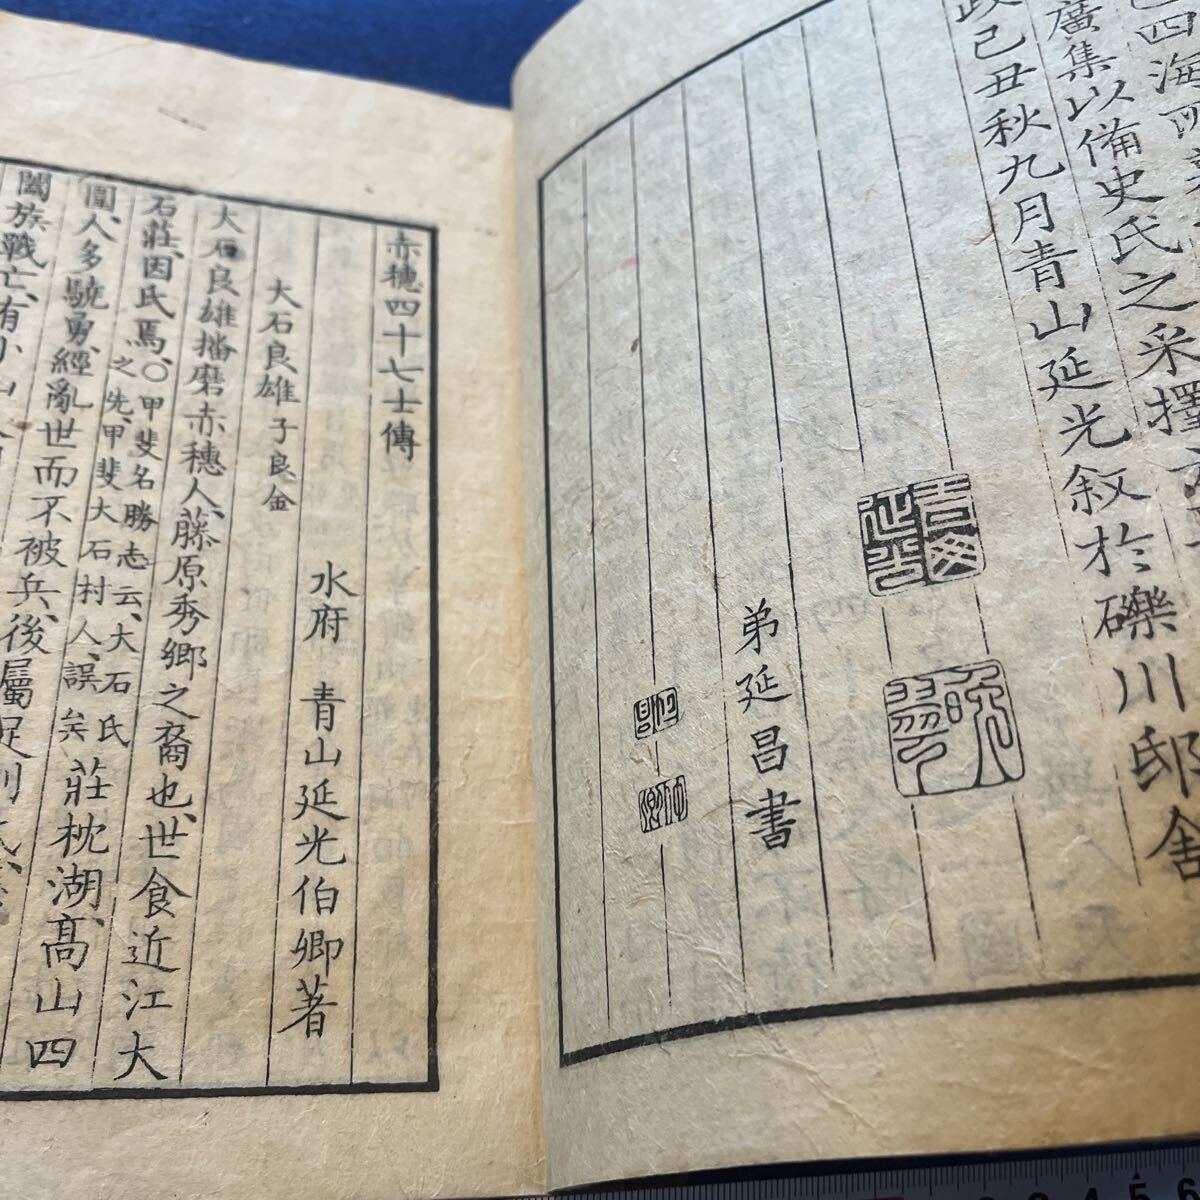 已四海
廣集以備史氏之采擇
政己丑秋九月青山延光敘於礫川邸舍
青山延光
弟延昌書
赤穗四十七士傳
水府 青山延光伯卿著
大石良雄 子良金
大石良雄播磨赤穗人、藤原秀鄉之裔也、世食近江大
石莊、因氏焉、○甲斐名勝志云、大石氏之先、甲斐大石村人、誤矣莊枕湖、高山四
圍、人多驍勇、經亂世而不被兵、後屬足利
闔族戰亡、有小山
3 4 5 6